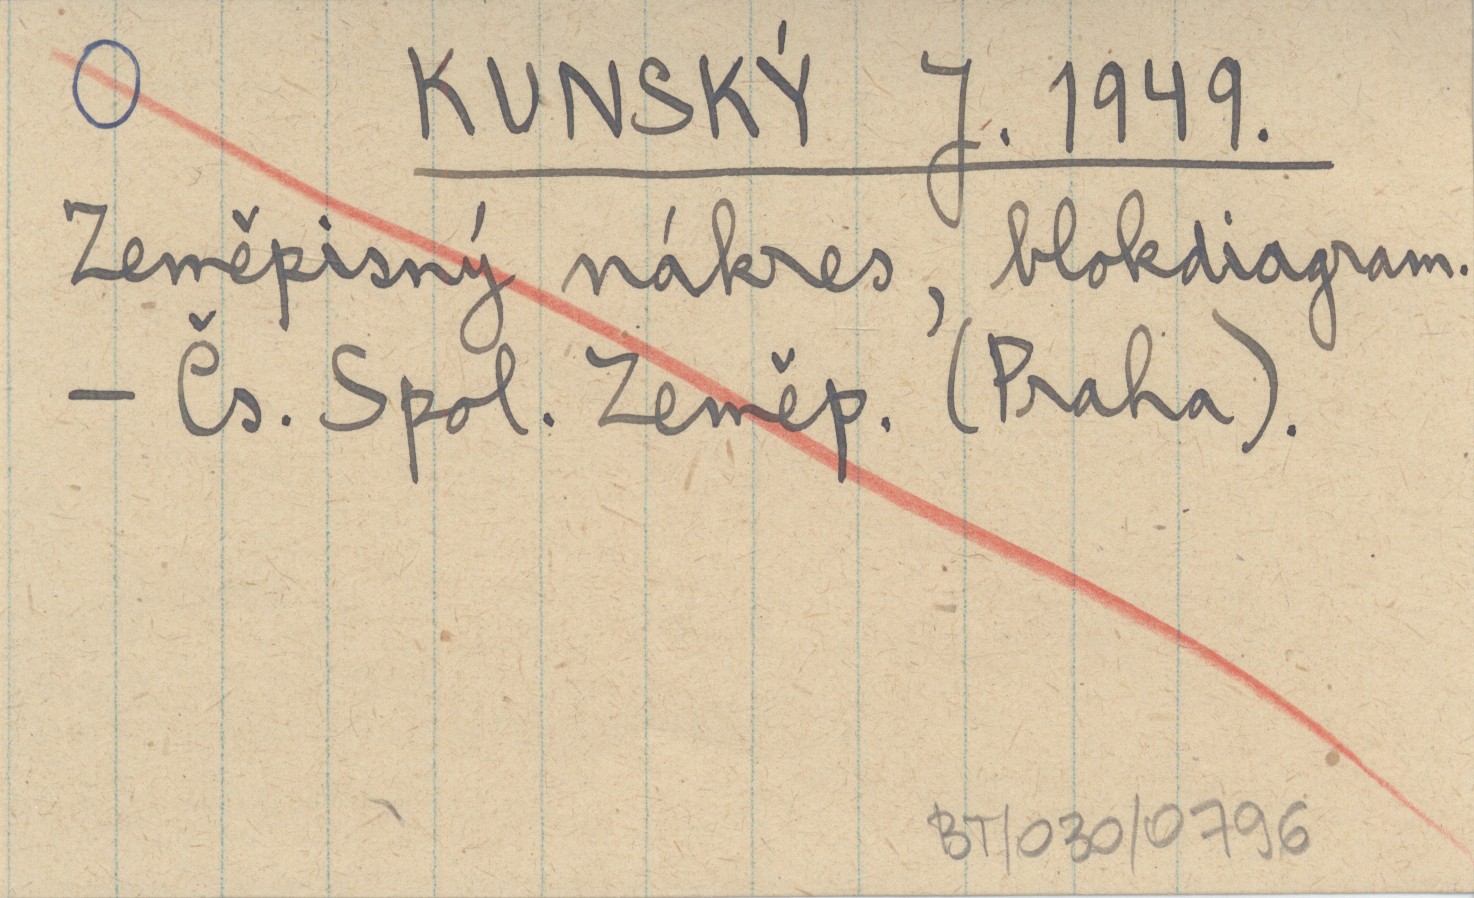 KUNSKÝ J. 1949.
Zeměpisný nákres, blokdiagram.
— Čs. Spol. Zeměp. (Praha).
BT/030/0796